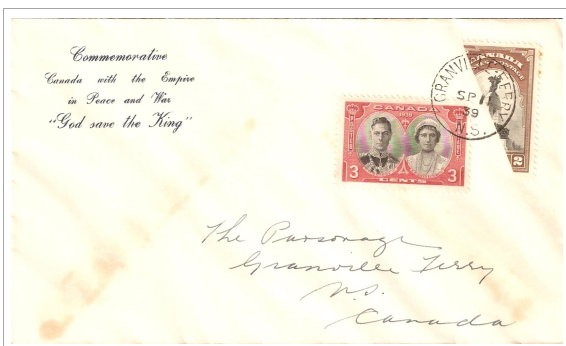 Commemorative
Canada with the Empire
in Peace and War
"God save the King"
CANADA
POSTAGE
2
GRANVILLE FERRY
SP 11
39
N.S.
CANADA
1939
3 3
CENTS
The Parsonage
Granville Ferry
N.S.
Canada